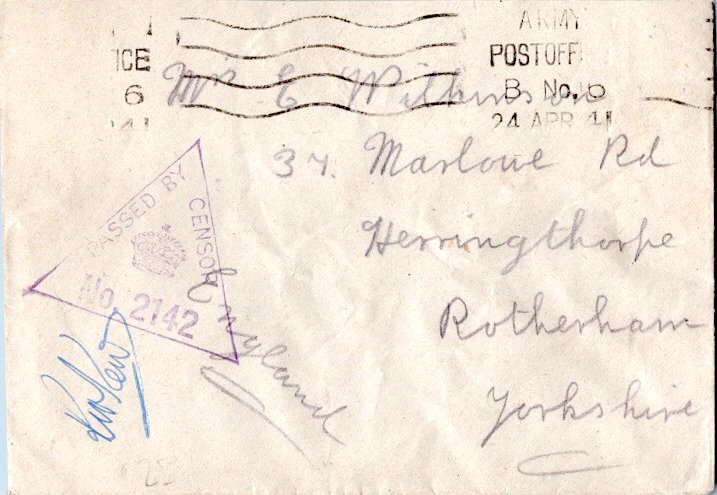 ARMY
ICE POSTOFF
6 B No. 6
24 APR 41
Mrs E Wilkinson
37. Marlowe Rd
Herringthorpe
Rotherham
Yorkshire
England
PASSED BY CENSOR
No. 2142